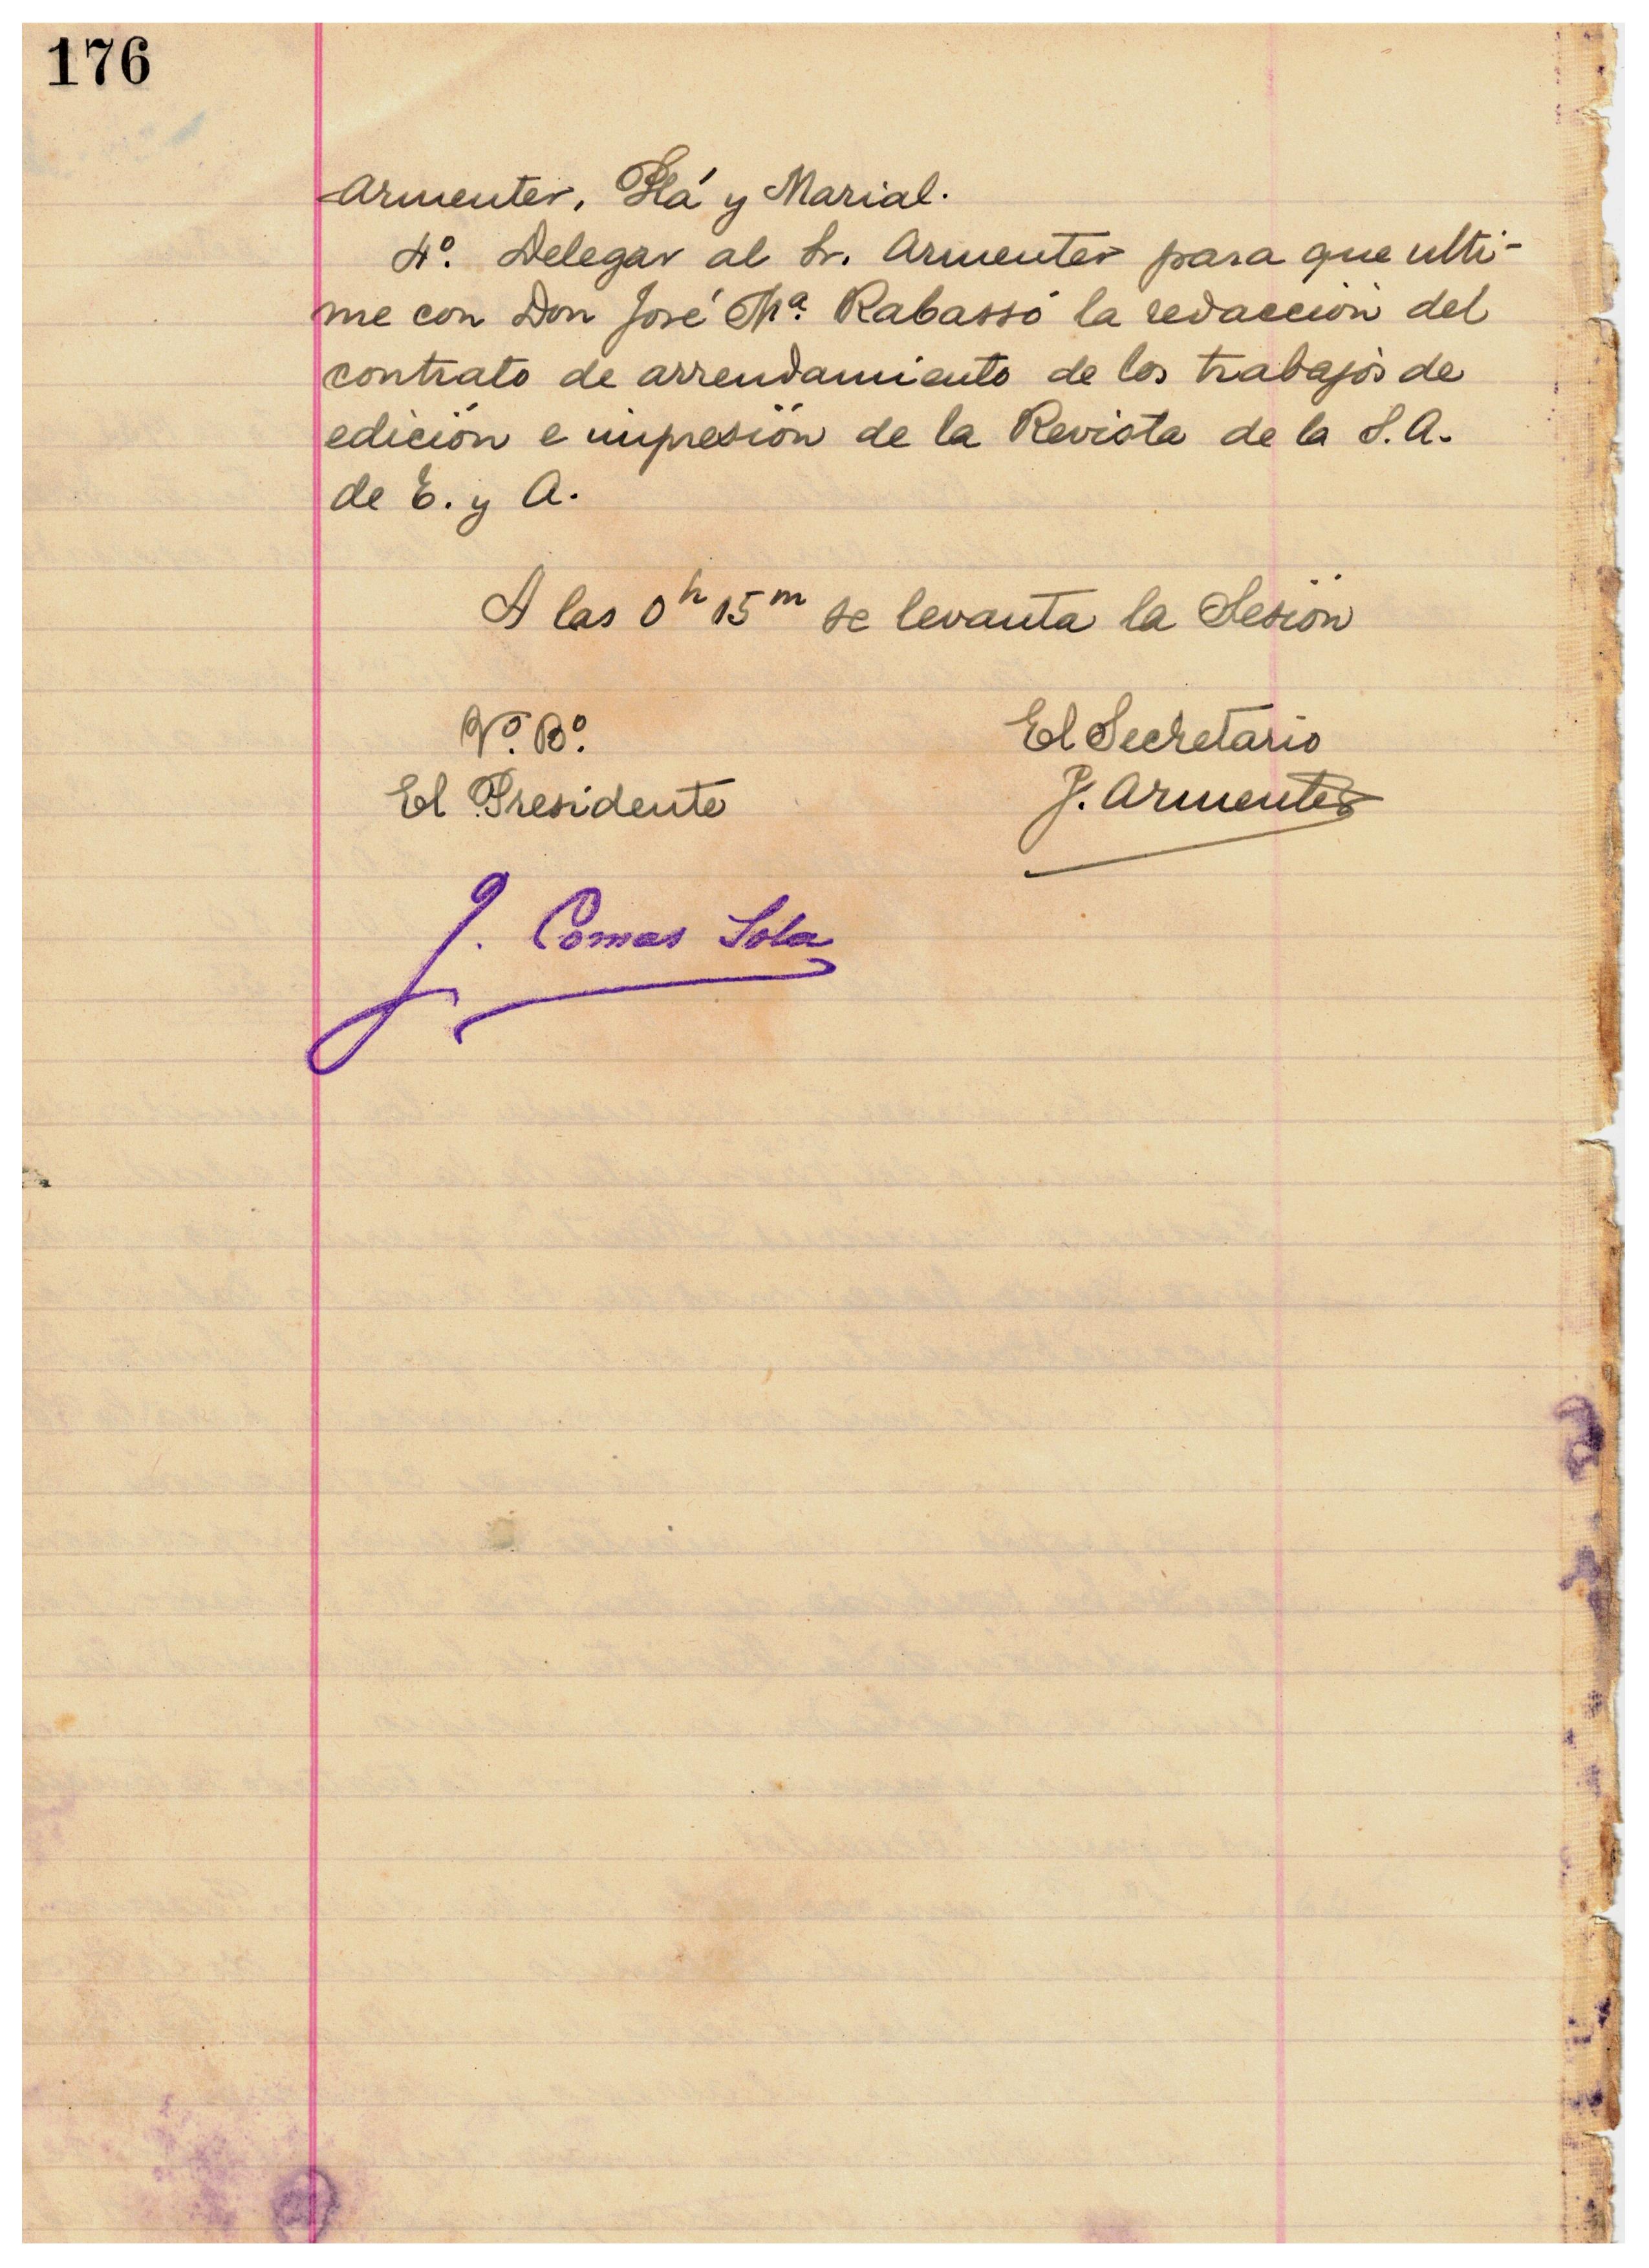 176
Armenter, Plá y Marial.
4º. Delegar al Sr. Armenter para que ulti-
me con Don José Mª. Rabassó la redacción del
contrato de arrendamiento de los trabajos de
edición e impresión de la Revista de la S.A.
de E. y A.
A las 0h 15m se levanta la Sesión
Vº. Bº.
El Secretario
El Presidente
F. Armenter
J. Comas Solá